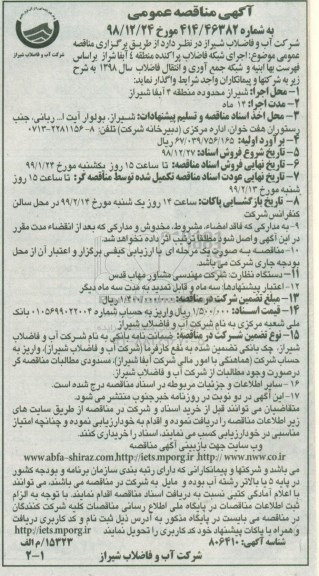 آگهی مناقصه عمومی
به شماره ۴۱۴/۴۶۳۸۲ مورخ ۹۸/۱۲/۲۴
شرکت آب و فاضلاب شیراز
شرکت آب و فاضلاب شیراز در نظر دارد از طریق برگزاری مناقصه
عمومی موضوع: اجرای شبکه فاضلاب پراکنده منطقه ۴ آبفا شیراز براساس
فهرست بها ابنیه و شبکه جمع آوری و انتقال فاضلاب سال ۱۳۹۸ به شرح
زیر به شرکتها و پیمانکاران واجد شرایط واگذار نماید:
۱- محل اجرا: شیراز محدوده منطقه ۴ آبفا شیراز
۲- مدت اجرا: ۱۲ ماه
۳- محل اخذ اسناد مناقصه و تسلیم پیشنهادات: شیراز، بولوار آیت ا... ربانی، جنب
رستوران هفت خوان، اداره مرکزی (دبیرخانه شرکت) تلفن: ۸-۲۲۸۱۱۵۶-۰۷۱۳
۴- برآورد اولیه: ۶۷/۰۳۹/۷۵۶/۱۶۵ ریال
۵- تاریخ شروع فروش اسناد: ۹۸/۱۲/۲۷
۶- تاریخ نهایی فروش اسناد مناقصه: تا ساعت ۱۵ روز یکشنبه مورخ ۹۹/۱/۲۴
۷- تاریخ نهایی عودت اسناد مناقصه تکمیل شده توسط مناقصه گر: تا ساعت ۱۵ روز
شنبه مورخ ۹۹/۲/۱۳
۸- تاریخ بازگشایی پاکات: ساعت ۱۲ روز یک شنبه مورخ ۹۹/۲/۱۴ در محل سالن
کنفرانس شرکت
۹- به مدارکی که فاقد امضاء، مشروط، مخدوش و مدارکی که بعد از انقضاء مدت مقرر
در این آگهی واصل شود مطلقاً ترتیب اثر داده نخواهد شد.
۱۰- مناقصه به صورت یک مرحله ای با ارزیابی کیفی برگزار و اعتبار آن از محل
بودجه جاری شرکت می باشد
۱۱- دستگاه نظارت: شرکت مهندسی مشاور مهاب قدس
۱۲- اعتبار پیشنهادها: سه ماه و قابل تمدید به مدت سه ماه دیگر
۱۳- مبلغ تضمین شرکت در مناقصه: ریال
۱۴- قیمت اسناد: ۱/۵۰۰/۰۰۰ ریال واریز به حساب شماره ۰۱۰۵۶۹۹۰۲۲۰۰۴ بانک
ملی شعبه مرکزی به نام شرکت آب و فاضلاب شیراز
۱۵- نوع تضمین شرکت در مناقصه: ضمانت نامه بانکی به نام شرکت آب و فاضلاب
شیراز، چک بانکی تضمین شده به نفع کارفرما (شرکت آب و فاضلاب شیراز)، واریز به
حساب شرکت (هماهنگی با امور مالی شرکت آبفا شیراز)، مسدودی مطالبات مناقصه گر
درصورت وجود مطالبات از شرکت آب و فاضلاب شیراز.
۱۶- سایر اطلاعات و جزئیات مربوطه در اسناد مناقصه درج شده است.
۱۷- این آگهی در دو نوبت در روزنامه خبرجنوب منتشر می شود.
متقاضیان می توانند قبل از خرید اسناد و شرکت در مناقصه از طریق سایت های
زیر اطلاعات مناقصه را دریافت نموده و اقدام به خودارزیابی نموده و چنانچه امتیاز
مناسبی در خودارزیابی کسب می نمایند، اسناد را خریداری کنند.
وب سایت جهت بازبینی آگهی مناقصه
www.abfa-shiraz.com http://iets.mporg.ir http://www.nww.co.ir
می باشد و شرکتها و پیمانکارانی که دارای رتبه بندی سازمان برنامه و بودجه کشور
در پایه ۵ یا بالاتر رشته آب بوده و مایل به شرکت در مناقصه می باشند، می توانند
با اعلام آمادگی کتبی نسبت به دریافت اسناد مناقصه اقدام نمایند. با توجه به الزام
ثبت اطلاعات مناقصات در پایگاه ملی اطلاع رسانی مناقصات کلیه شرکت کنندگان
در مناقصه می بایست در پایگاه مذکور به آدرس ذیل ثبت نام و کد کاربری دریافت
و همراه با پاکات پیشنهاد خود کد کاربری را تحویل نمایند http://iets.mporg.ir
شناسه آگهی: ۸۰۶۴۱۰ ۱۵۳۲۳/م الف
شرکت آب و فاضلاب شیراز ۲-۱